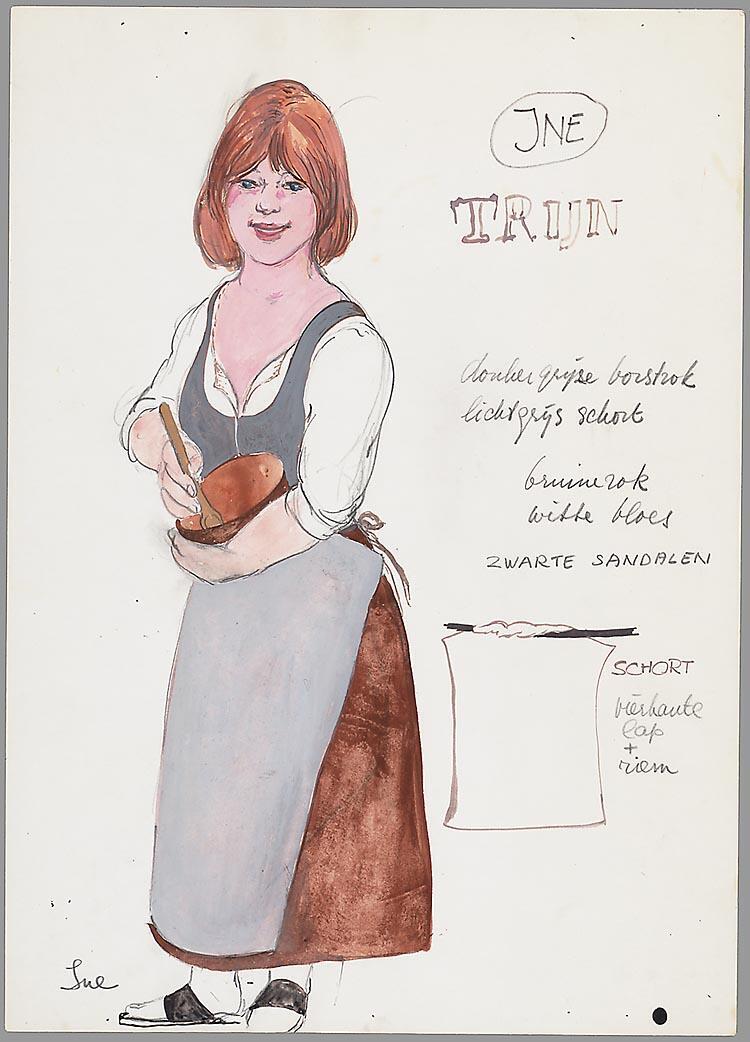 JNE
TRIJN
donker grijze borstrok
lichtgrijs schort
bruine rok
witte bloes
ZWARTE SANDALEN
SCHORT
vierkante
lap
+
riem
Jne